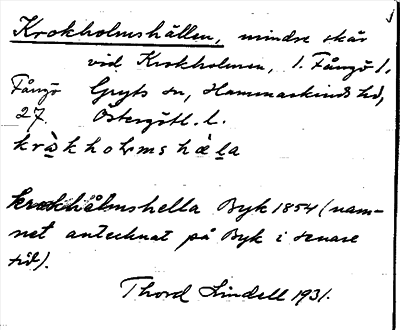 Krokholmshällen, mindre skär
vid Krokholmen, l. Fångö l,
Fångö Gryts sn, Hammarkinds hd,
27. Östergötl. l.
kràkholmshàḷa
krokhålmshella Byk 1854 (nam-
net antecknat på Byk i senare
tid).
Thord Lindell 1931.